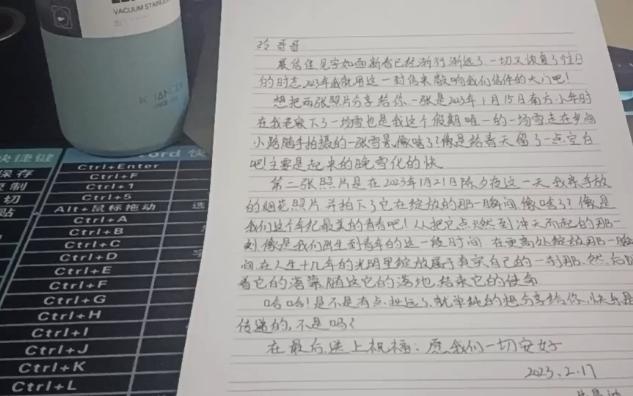 VACUUM STAINL
快捷键
保存
复制
切
贴
Word 快
Ctrl+Enter
Ctrl+F
Ctrl+1
Ctrl+5
Alt+鼠标拖动
Ctrl+A
Ctrl+B
Ctrl+C
Ctrl+D
Ctrl+E
Ctrl+F
Ctrl+G
Ctrl+H
Ctrl+I
Ctrl+J
Ctrl+K
Ctrl+L
展信佳见字如面新春已经渐行渐远了,一切又恢复了往日
的时态,2023年我就用这一封信来敲响我们信件的大门吧!
想把两张照片分享给你一张是2023年1月15日南方小年时
在我老家下了一场雪也是我这个假期唯一的一场雪走在乡间
小路随手拍摄的一张雪景像啥了?像是给春天留了一点空白
吧!主要是起来的晚雪化的快
第二张照片是在2023年1月21日除夕夜这一天我亲手放
的烟花照片并拍下了它在绽放的那一瞬间像啥了?像是
我们这个年纪最美的青春吧!从把它点燃到冲天而起的那一
刻像是我们出生到青春的这一段时间在更高处绽放那一瞬
间在人生十几年的光明里绽放属于真实自己的一刹那,然后
着它的落幕随这它的落地结束它的使命
哈哈!是不是有点扯远了,就单纯的想分享给你,快乐是
传递的,不是吗?
在最后送上祝福:愿我们一切安好
2023.2.17